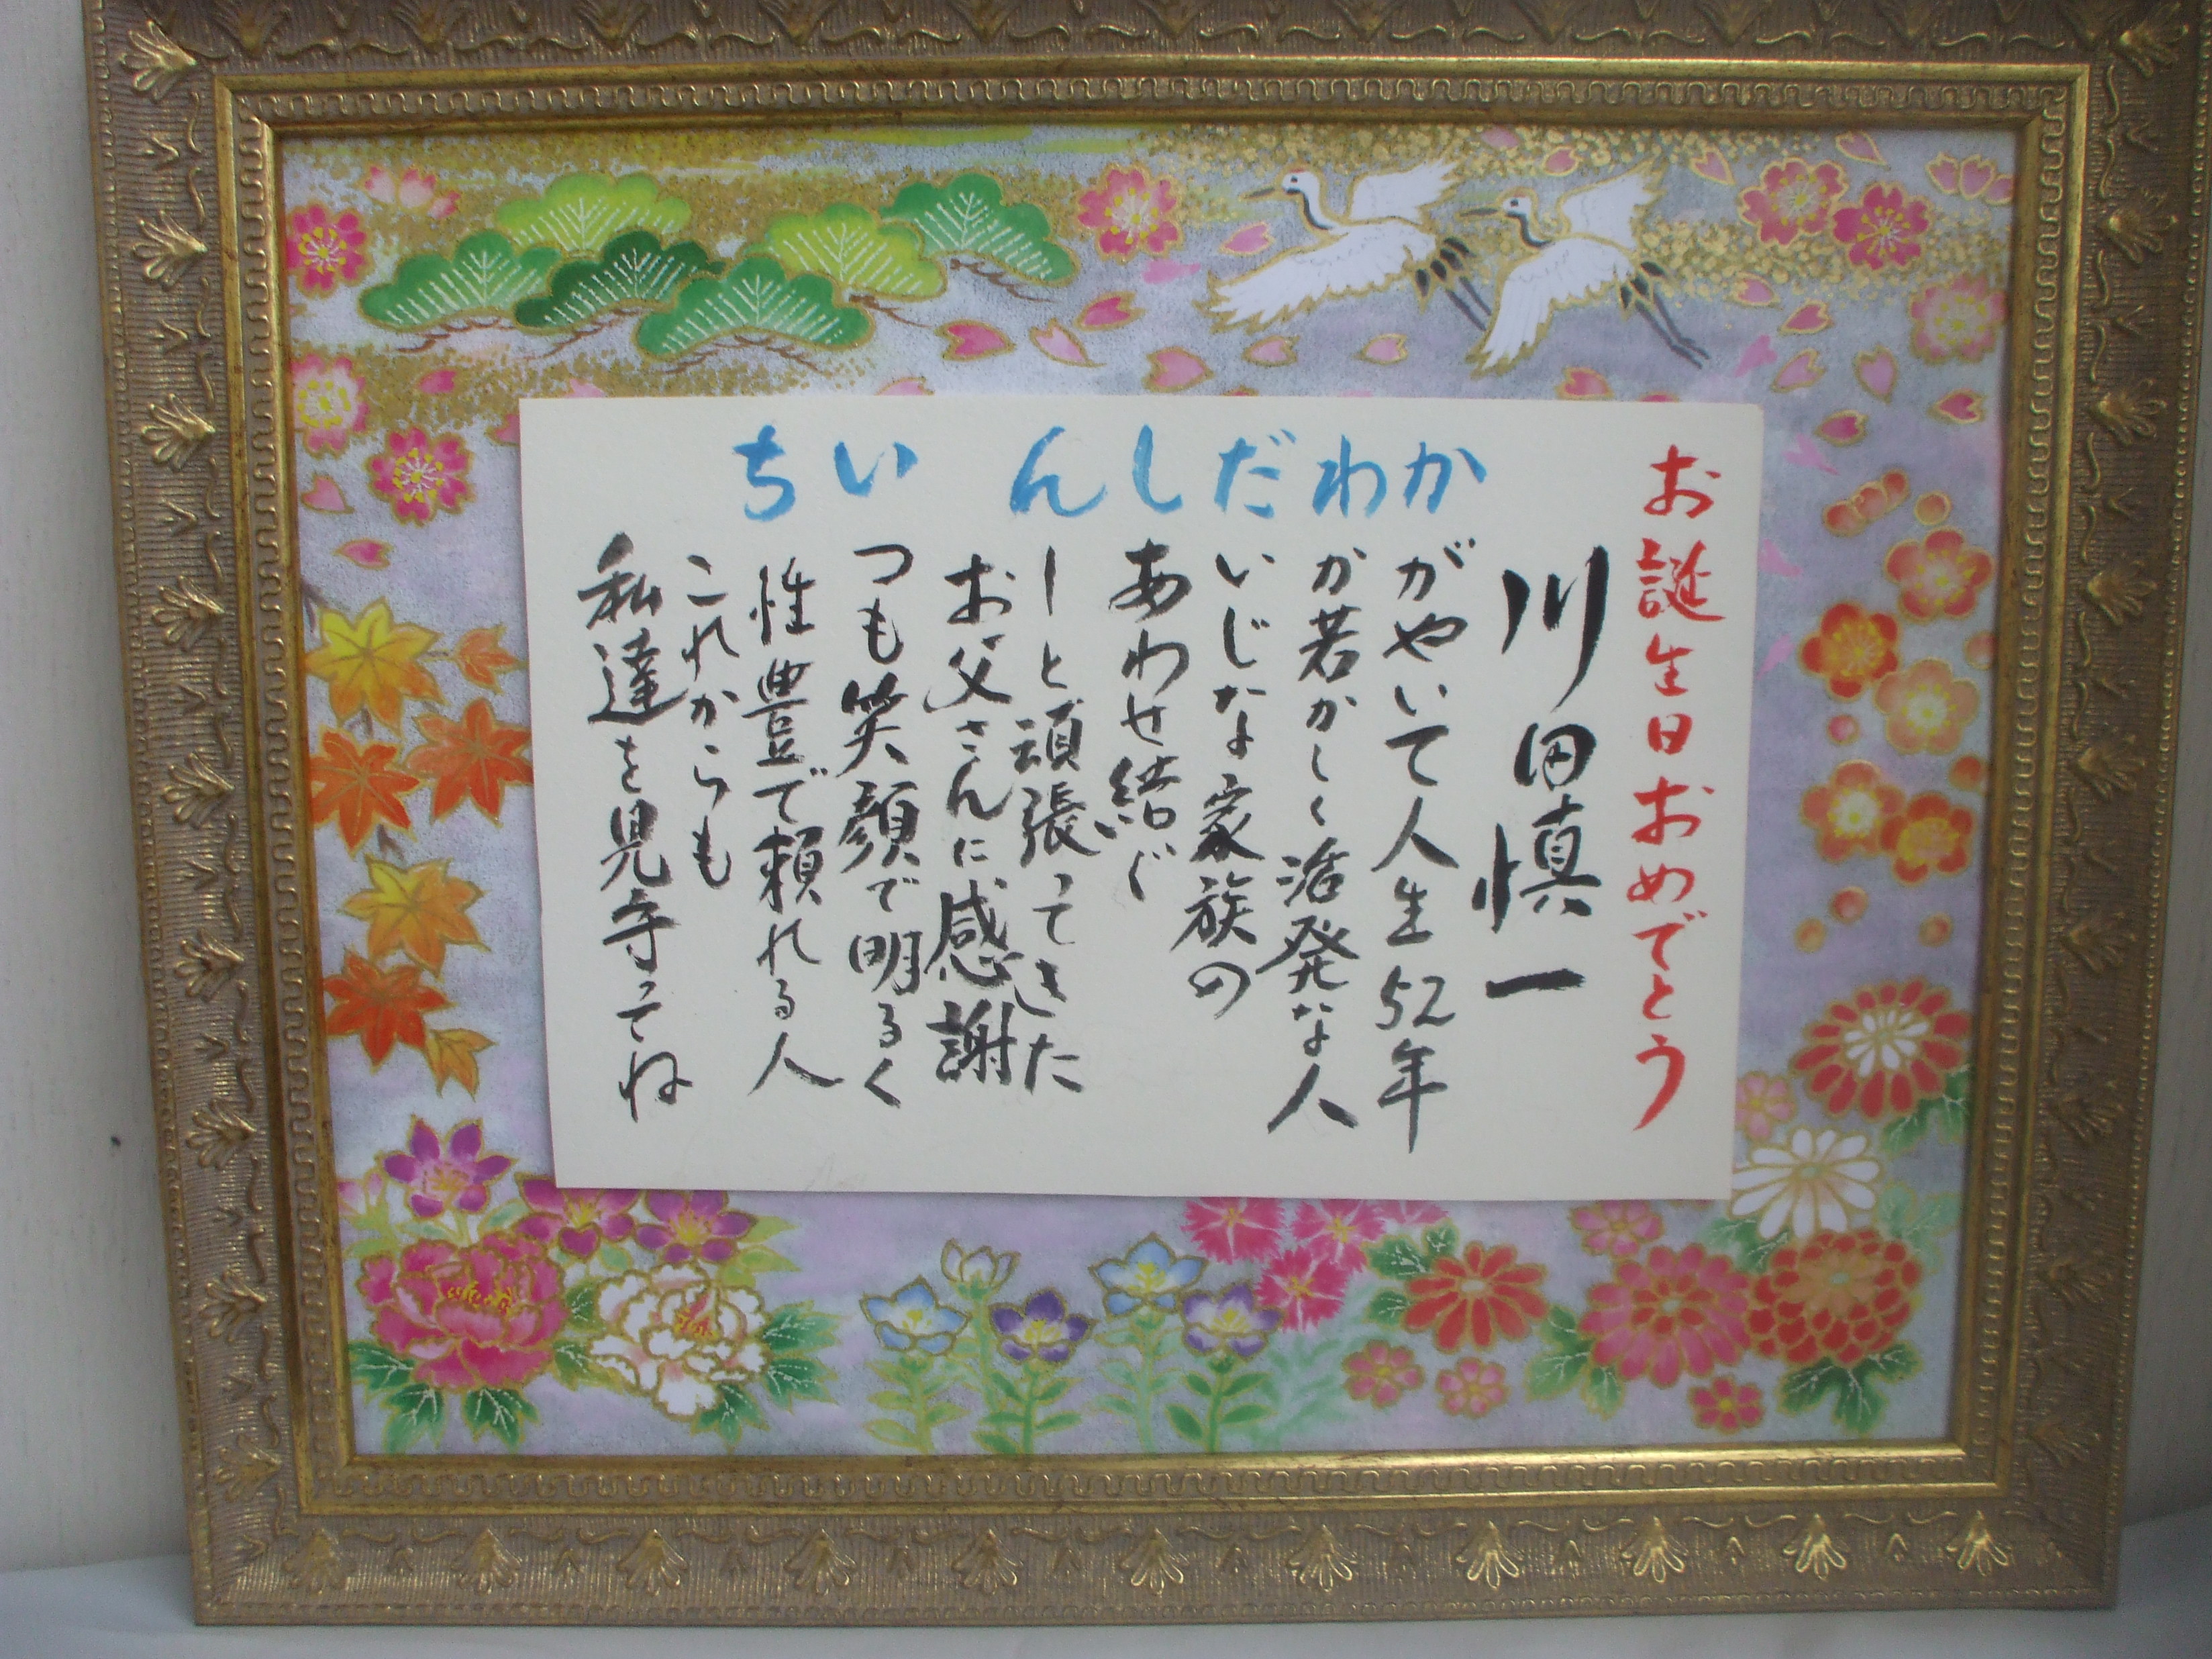 お誕生日おめでとう
川田慎一
かがやいて人生52年
わか若かしく活発な人
だいじな家族の
しあわせ結ぐ
んーと頑張ってきた
お父さんに感謝
いつも笑顔で明るく
ち性豊で頼れる人
これからも
私達を見守ってね